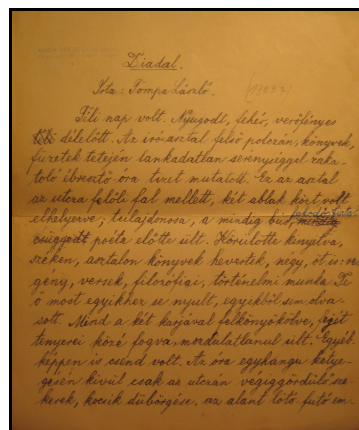 Diadal.
Irta: Tompa László.
Téli nap volt. Nyugodt, fehér, verőfényes
téli délelőtt. Az iróasztal felső polczán, könyvek,
füzetek tetején lankadatlan serénységgel zaka-
toló ébresztő óra tizet mutatott. Ez az asztal
az utcza felőli fal mellett, két ablak közt volt
elhelyezve; tulajdonosa, a mindig bús,
csüggedt poéta előtte ült. Körülötte kinyitva,
széken, asztalon könyvek hevertek, négy, öt is: re-
gény, versek, filozófiai, történelmi munka. De
ő most egyikhez se nyult, egyekből sem olva-
sott. Mind a két karjával felkönyökölve, fejét
tenyerei közé fogva, mozdulatlanul ült. Egyéb-
képpen is csend volt. Az óra egyhangu ketye-
gésén kívül csak az utczán végiggördülő sze-
kerek, kocsik dübörgése, az alant futó em-